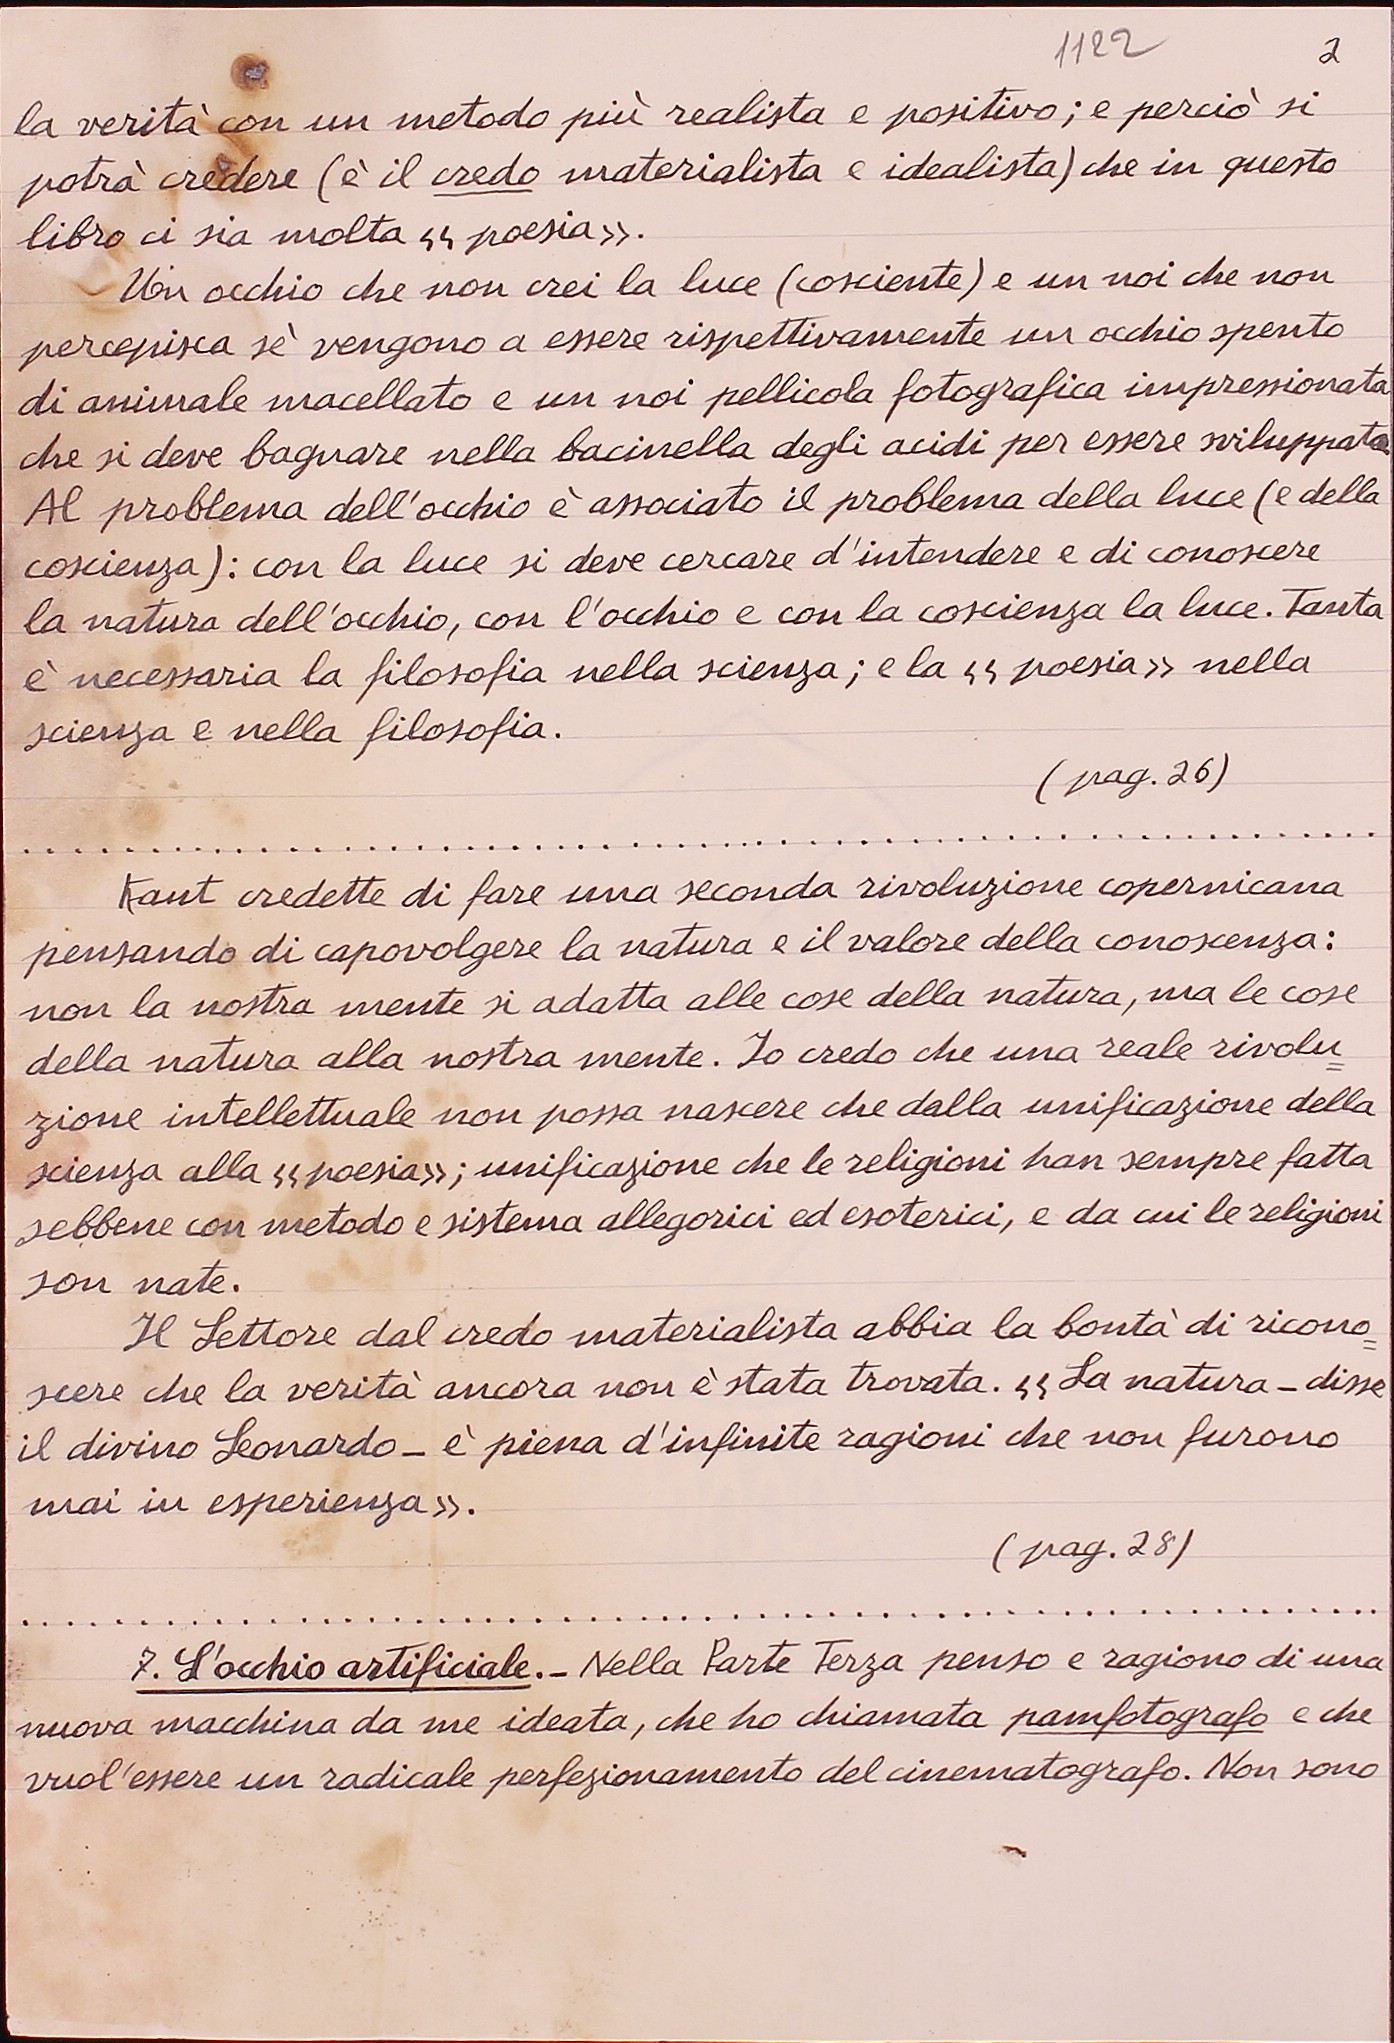 1122
2
la verità con un metodo più realista e positivo; e perciò si
potrà credere (è il credo materialista e idealista) che in questo
libro ci sia molta «poesia».
Un occhio che non crei la luce (cosciente) e un noi che non
percepisca sè vengono a essere rispettivamente un occhio spento
di animale macellato e un noi pellicola fotografica impressionata
che si deve bagnare nella bacinella degli acidi per essere sviluppata.
Al problema dell'occhio è associato il problema della luce (e della
coscienza): con la luce si deve cercare d'intendere e di conoscere
la natura dell'occhio, con l'occhio e con la coscienza la luce. Tanta
è necessaria la filosofia nella scienza; e la «poesia» nella
scienza e nella filosofia.
(pag. 26)
Kant credette di fare una seconda rivoluzione copernicana
pensando di capovolgere la natura e il valore della conoscenza:
non la nostra mente si adatta alle cose della natura, ma le cose
della natura alla nostra mente. Io credo che una reale rivolu=
zione intellettuale non possa nascere che dalla unificazione della
scienza alla «poesia»; unificazione che le religioni han sempre fatta
sebbene con metodo e sistema allegorici ed esoterici, e da cui le religioni
son nate.
Il Lettore dal credo materialista abbia la bontà di ricono=
scere che la verità ancora non è stata trovata. «La natura – disse
il divino Leonardo – è piena d'infinite ragioni che non furono
mai in esperienza».
(pag. 28)
7. L'occhio artificiale. – Nella Parte Terza penso e ragiono di una
nuova macchina da me ideata, che ho chiamata pamfotografo e che
vuol'essere un radicale perfezionamento del cinematografo. Non sono